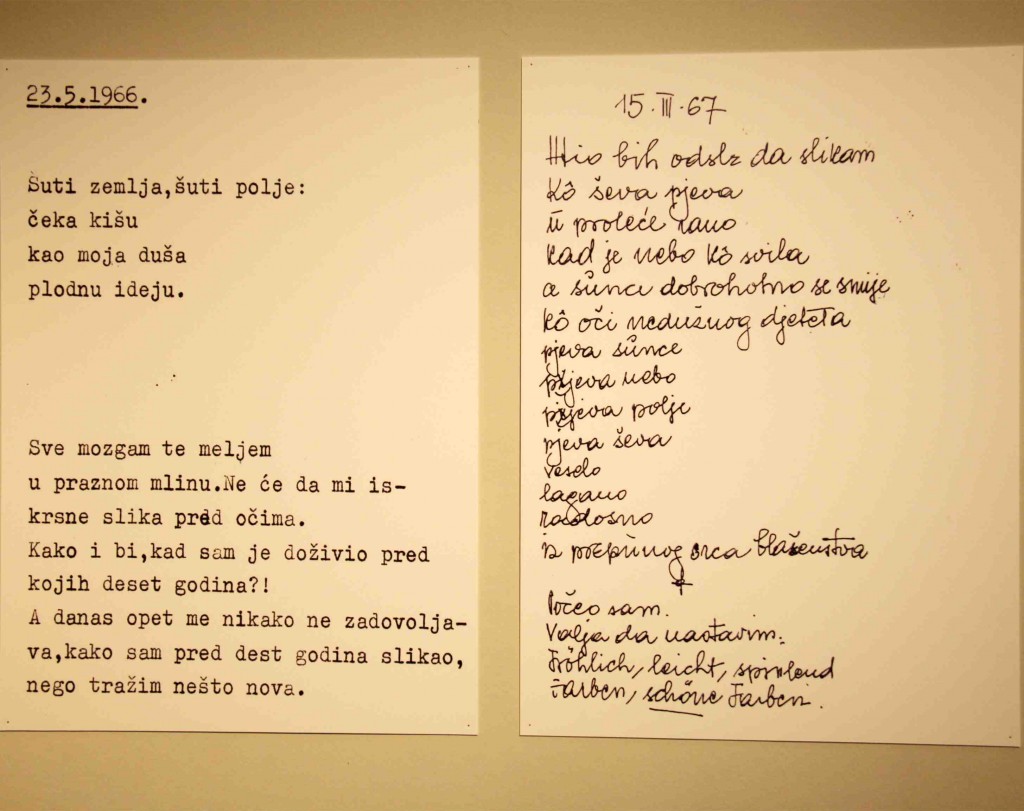 23.5.1966.
Šuti zemlja,šuti polje:
čeka kišu
kao moja duša
plodnu ideju.
Sve mozgam te meljem
u praznom mlinu.Ne će da mi is-
krsne slika pred očima.
Kako i bi,kad sam je doživio pred
kojih deset godina?!
A danas opet me nikako ne zadovolja-
va,kako sam pred dest godina slikao,
nego tražim nešto nova.
15.III.67
Htio bih odslz da slikam
Kô ševa pjeva
u proleće rano
kad je nebo kô svila
a sunce dobrohotno se smije
kô oči nedužnog djeteta
pjeva sunce
pjeva nebo
pjeva polje
pjeva ševa
veselo
lagano
radosno
iz prepunog srca blaženstva
Počeo sam.
Valja da nastavim:
Fröhlich, leicht, spielend
Farben, schöne Farben.